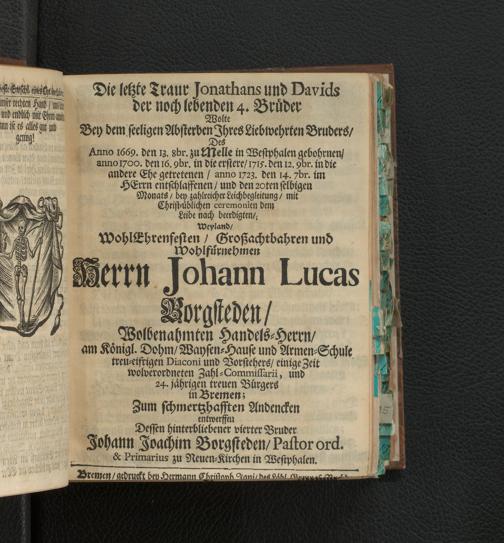 Die letzte Traur Jonathans und Davids
der noch lebenden 4. Brüder
Wolte
Bey dem seeligen Absterben Ihres Liebwehrten Bruders/
Des
Anno 1669. den 13. 8br. zu Melle in Westphalen gebohrnen/
anno 1700. den 16. 9br. in die erstere/ 1715. den 12. 9br. in die
andere Ehe getretenen / anno 1723. den 14. 7br. im
HErrn entschlaffenen/ und den 20ten selbigen
Monats/ bey zahlreicher Leichbegleitung/ mit
Christ-üblichen ceremonien dem
Leibe nach beerdigten/
Weyland/
WohlEhrenfesten / Großachtbahren und
Wohlfürnehmen
Herrn Johann Lucas
Borgsteden/
Wolbenahmten Handels-Herrn/
am Königl. Dohm/ Waysen-Hause und Armen-Schule
treu-eifrigen Diaconi und Vorstehers/ einige Zeit
wolverordneten Zahl-Commissarii, und
24. jährigen treuen Bürgers
in Bremen;
Zum schmertzhafften Andencken
entwerffen
Dessen hinterbliebener vierter Bruder
Johann Joachim Borgsteden/ Pastor ord.
& Primarius zu Neuen-Kirchen in Westphalen.
Bremen/ gedruckt bey Hermann Christoph Jani/ des Löbl.